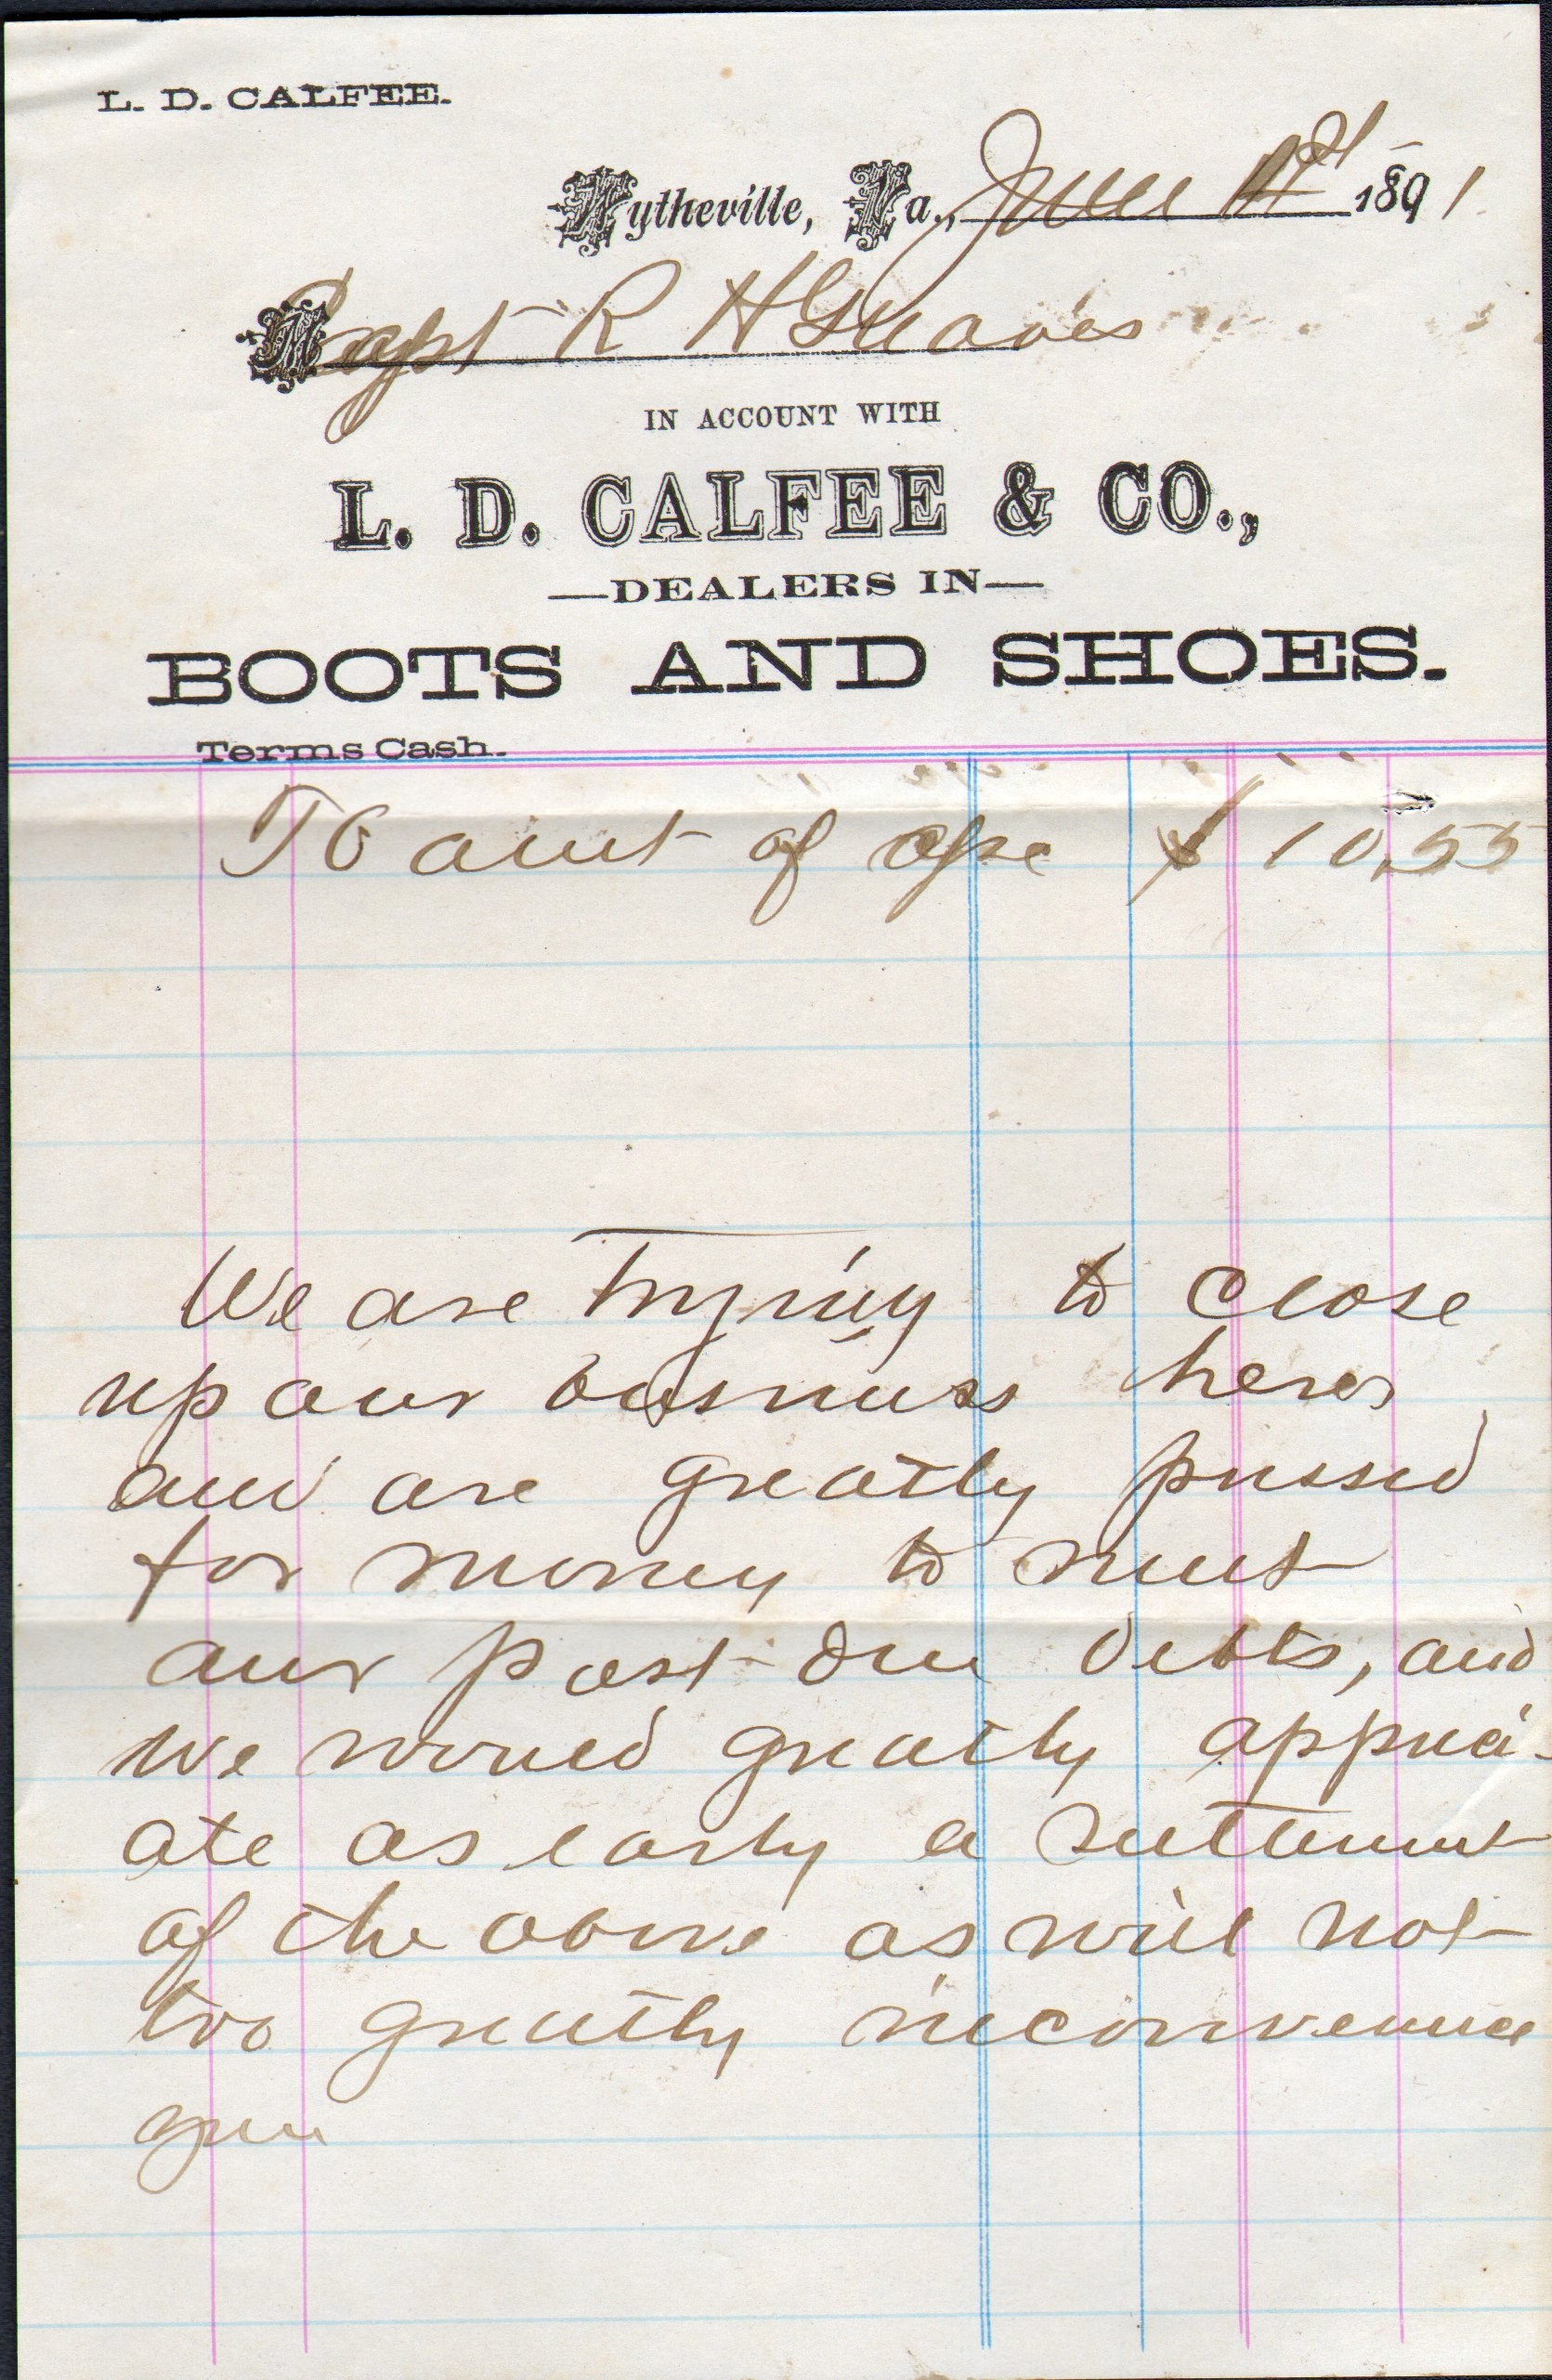 L. D. CALFEE.
Wytheville, Va., June 1st 1891
M Capt R H Greaves
IN ACCOUNT WITH
L. D. CALFEE & CO.,
—DEALERS IN—
BOOTS AND SHOES.
Terms Cash.
To amt of $ 10,55
We are trying to close
up our business here
and are greatly pressed
for money to meet
our past due debts, and
we would greatly appreci-
ate as early a settlement
of the above as will not
too greatly inconvenience
you